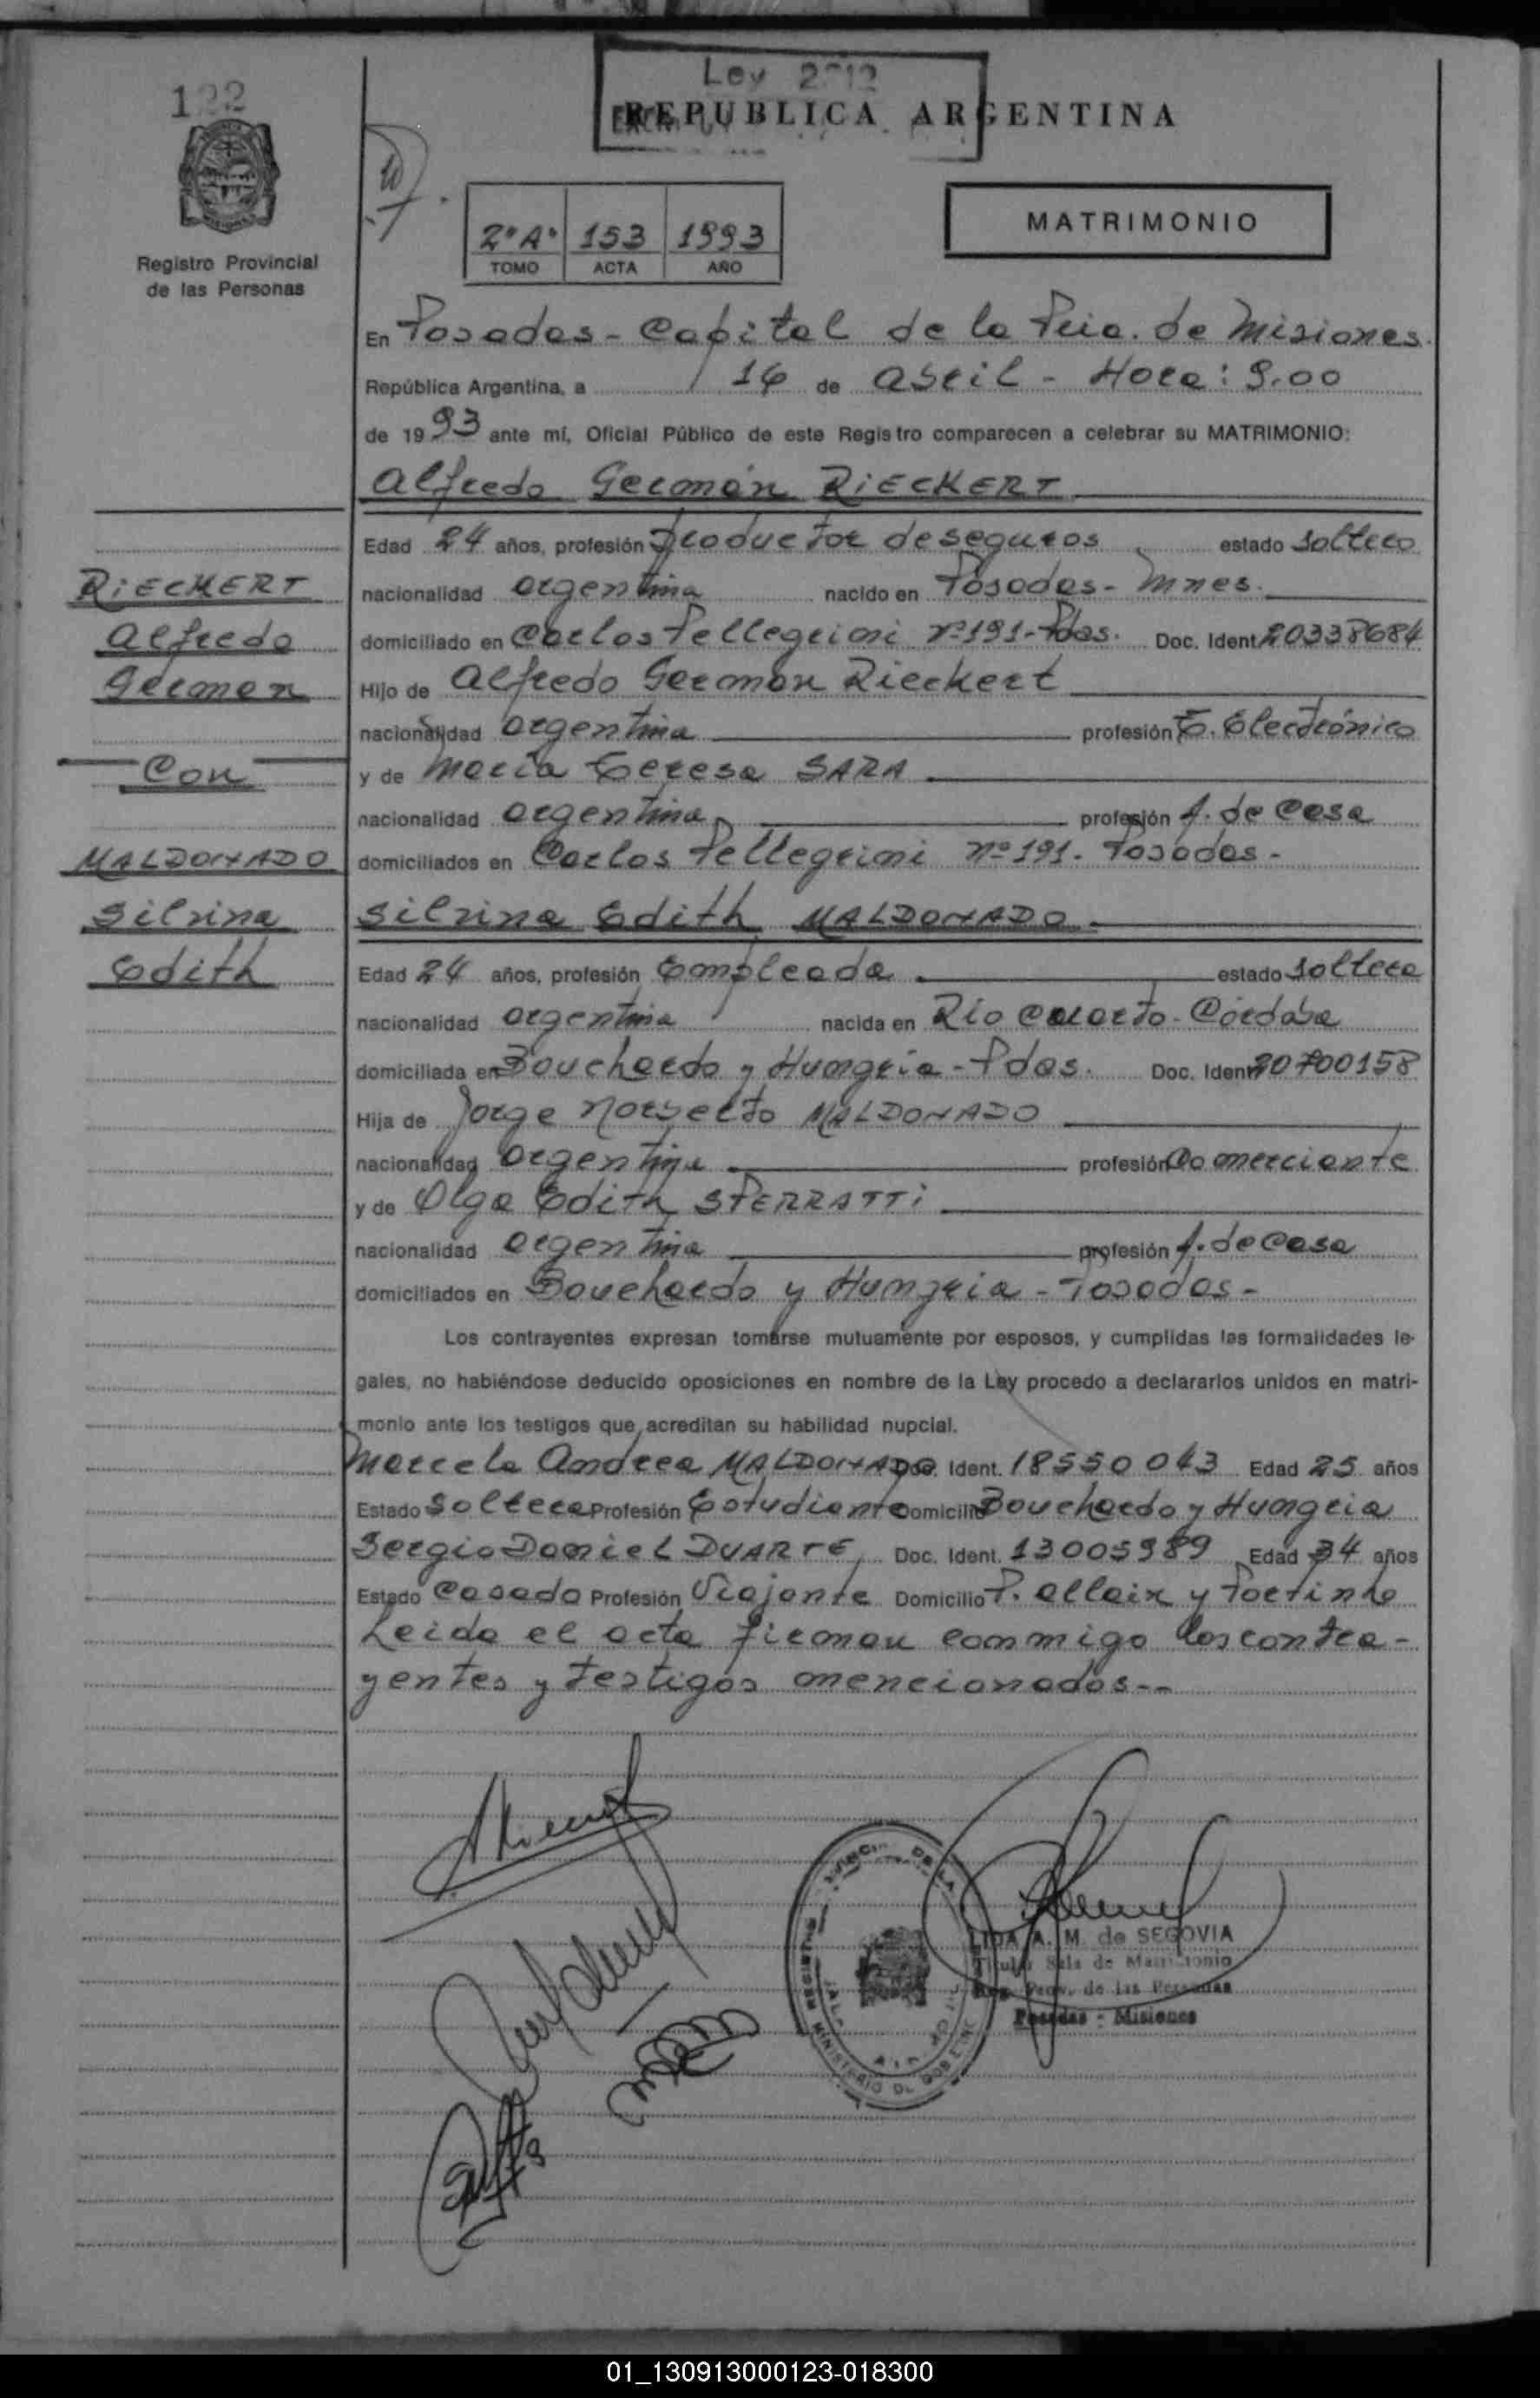 122
Ley 2
REPUBLICA ARGENTINA
MATRIMONIO
2º A° 153 1993
TOMO ACTA AÑO
Registro Provincial
de las Personas
En Posadas - Capital de la Pcia. de Misiones.
República Argentina, a 16 de Abril - Hora: 9.00
de 1993 ante mí, Oficial Público de este Registro comparecen a celebrar su MATRIMONIO:
Alfredo Germán RIECKERT
Edad 24 años, profesión productor de seguros estado soltero
RIECKERT
Alfredo
German
Con
MALDONADO
Silvina
Edith
nacionalidad argentina nacido en Posadas - Mnes.
domiciliado en Carlos Pellegrini nº 191 - Pdas. Doc. Ident. 20338684
Hijo de Alfredo Germán Rieckert
nacionalidad argentina profesión T. Electrónico
y de María Teresa SARA
nacionalidad argentina profesión A. de Casa
domiciliados en Carlos Pellegrini nº 191. Posadas -
Silvina Edith MALDONADO
Edad 24 años, profesión Empleada estado soltera
nacionalidad argentina nacida en Río Cuarto - Córdoba
domiciliada en Bouchardo y Hungría - Pdas. Doc. Ident. 20700158
Hija de Jorge Norberto MALDONADO
nacionalidad argentina profesión Comerciante
y de Olga Edith SPERRATTI
nacionalidad argentina profesión A. de Casa
domiciliados en Bouchardo y Hungria - Posadas -
Los contrayentes expresan tomarse mutuamente por esposos, y cumplidas las formalidades le-
gales, no habiéndose deducido oposiciones en nombre de la Ley procedo a declararlos unidos en matri-
monio ante los testigos que acreditan su habilidad nupcial.
Marcela Andrea MALDONADO Doc. Ident. 18550043 Edad 25 años
Estado Soltera Profesión Estudiante Domicilio Bouchardo y Hungria
Sergio Daniel DUARTE Doc. Ident. 13005989 Edad 34 años
Estado Casado Profesión Viajante Domicilio P. Allain y Portinho
Leida el acta firman conmigo los contra-
yentes y testigos mencionados--
A. M. de SEGOVIA
Titular Sala de Matrimonio
Reg. Prov. de las Personas
Posadas - Misiones
MINISTERIO DE GOBIERNO
01_130913000123-018300